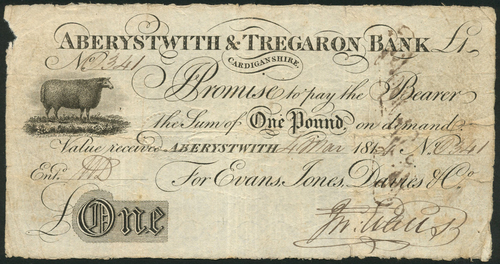 ABERYSTWITH & TREGARON BANK £1
CARDIGANSHIRE.
No 2341
I Promise to pay the Bearer
the Sum of One Pound on demand
Value received ABERYSTWITH 4 Mar 181 No 2341
Entd
For Evans, Jones, Davies & Co
£ One
Jn. Evans